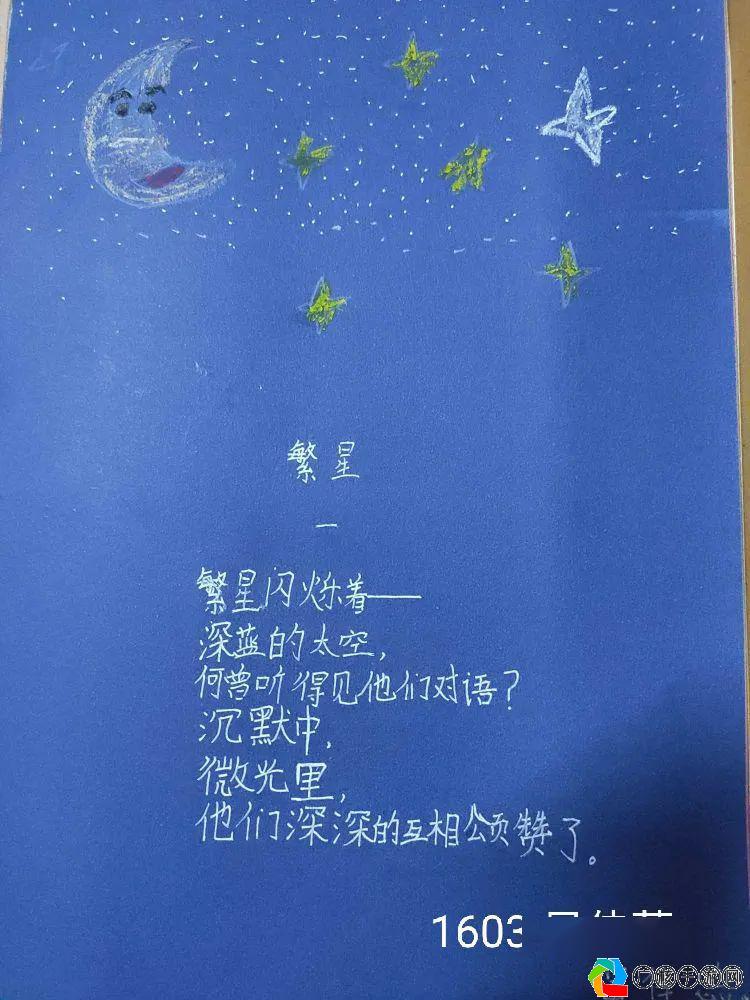 繁星
一
繁星闪烁着——
深蓝的太空，
何曾听得见他们对语？
沉默中，
微光里，
他们深深的互相颂赞了。
1603